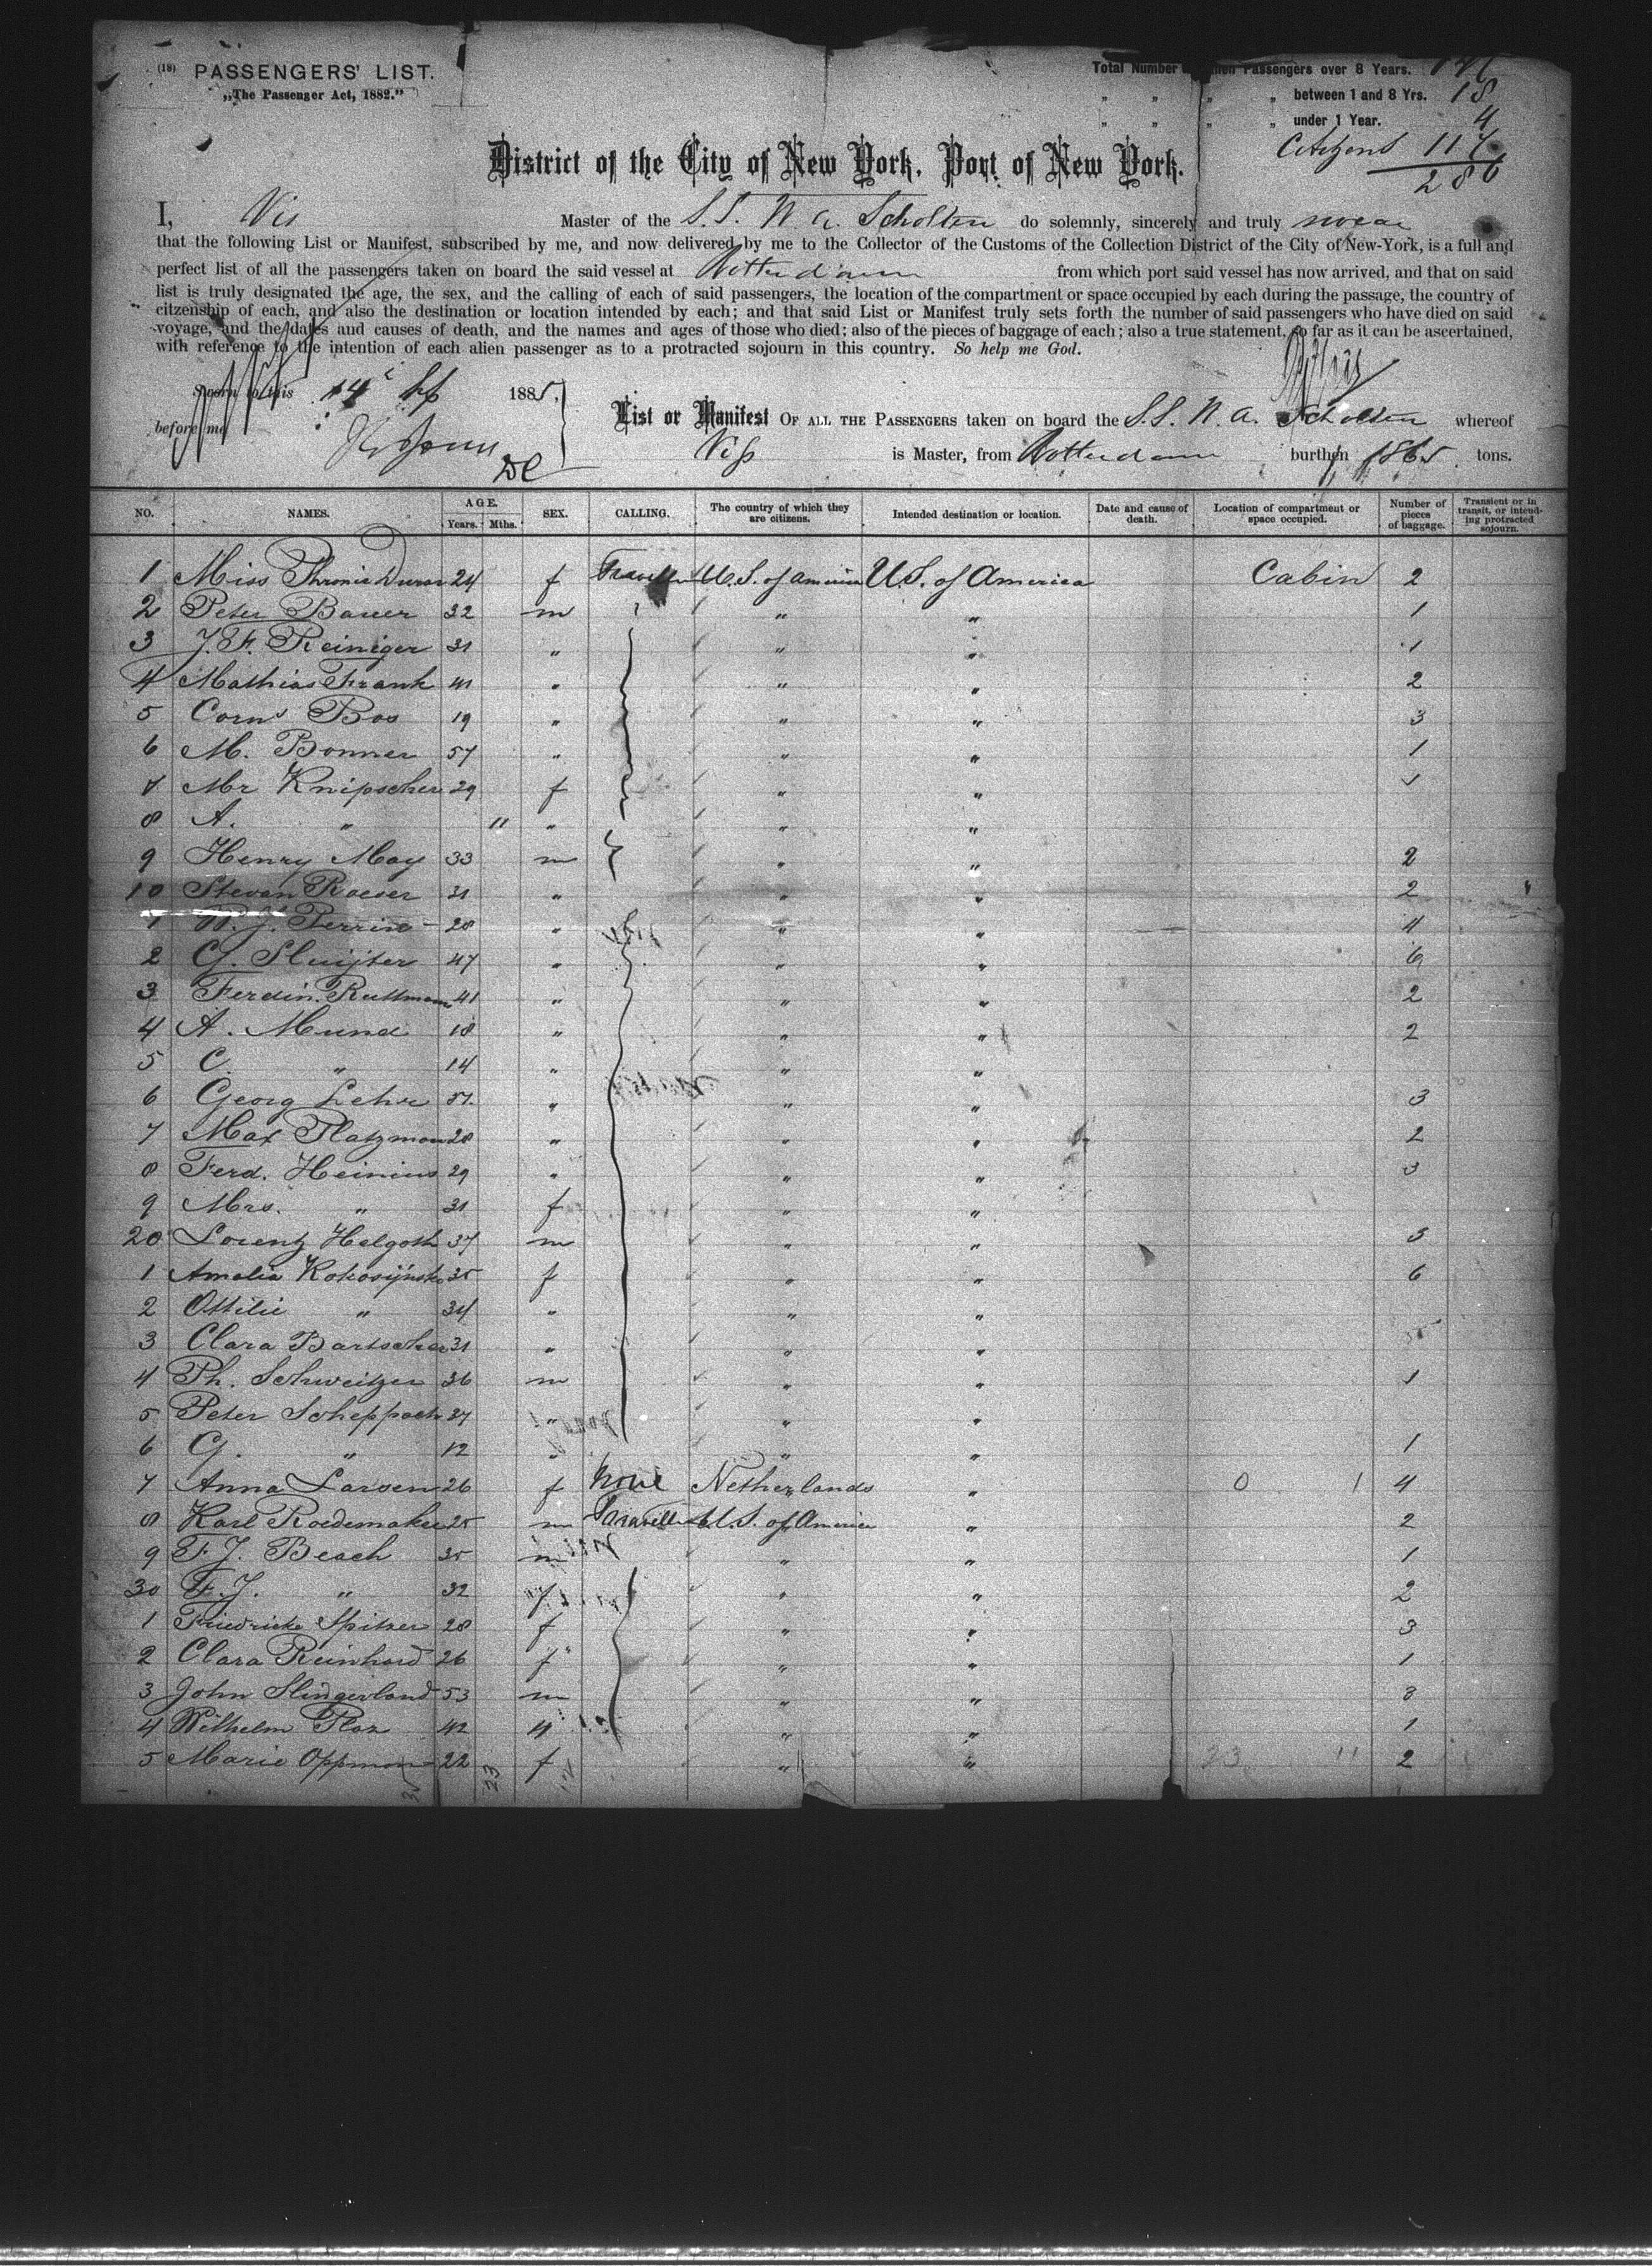 (18) PASSENGERS' LIST.
„The Passenger Act, 1882."
Total Number Passengers over 8 Years.
„ „ „ „ between 1 and 8 Yrs. 18
„ „ „ „ under 1 Year. 4
Citizens 117
286
District of the City of New York, Port of New York.
I, Vis Master of the S.S. W. A. Scholten do solemnly, sincerely and truly swear
that the following List or Manifest, subscribed by me, and now delivered by me to the Collector of the Customs of the Collection District of the City of New-York, is a full and
perfect list of all the passengers taken on board the said vessel at Rotterdam from which port said vessel has now arrived, and that on said
list is truly designated the age, the sex, and the calling of each of said passengers, the location of the compartment or space occupied by each during the passage, the country of
citzenship of each, and also the destination or location intended by each; and that said List or Manifest truly sets forth the number of said passengers who have died on said
voyage, and the dates and causes of death, and the names and ages of those who died; also of the pieces of baggage of each; also a true statement, so far as it can be ascertained,
with reference to the intention of each alien passenger as to a protracted sojourn in this country. So help me God.
Sworn to this 14 1885.
before me
List or Manifest OF ALL THE PASSENGERS taken on board the S.S. W. A. Scholten whereof
Vis is Master, from Rotterdam burthen 1865 tons.
NO. NAMES. AGE. Years. Mths. SEX. CALLING. The country of which they are citizens. Intended destination or location. Date and cause of death. Location of compartment or space occupied. Number of pieces of baggage. Transient or in transit, or intending protracted sojourn.
1 Miss 24 f U.S. of America U.S. of America Cabin 2
2 Peter Bauer 32 m „ „ 1
3 J. F. Reiniger 31 „ „ „ 1
4 Mathias Frank 41 „ „ „ 2
5 Corns Bos 19 „ „ „ 3
6 M. Bonner 57 „ „ „ 1
7 Mr Knipscher 29 f „ „ 1
8 A. „ 11 „ „ „
9 Henry May 33 m „ „ 2
10 Stevan Roeser 31 „ „ „ 2
1 W. J. Perrine 28 „ „ „ 4
2 G. Sluijter 47 „ „ „ 6
3 Ferdin. Ruttmann 41 „ „ „ 2
4 A. Mund 18 „ „ „ 2
5 C. „ 14 „ „ „
6 Georg Lehr 51 „ „ „ 3
7 Max Platzman 28 „ „ „ 2
8 Ferd. Heinius 29 „ „ „ 3
9 Mrs. „ 31 f „ „
20 Lorentz Helgoth 37 m „ „ 3
1 Amalia 35 f „ „ 6
2 Ottilie „ 34 „ „ „
3 Clara 31 „ „ „
4 Ph. Schweitzer 36 m „ „ 1
5 Peter Scheppach 37 „ „ „
6 G. „ 12 „ „ „ 1
7 Anna Larsen 26 f None Netherlands „ 0 1 4
8 Karl Roedemaker 25 m Traveller U.S. of America „ 2
9 F. J. Beach 35 m „ „ 1
30 F. J. „ 32 f „ „ 2
1 Friedricke Spitzer 28 f „ „ 3
2 Clara Reinhard 26 f „ „ 1
3 John Slingerland 53 m „ „ 3
4 Wilhelm Plaz 42 „ „ „ 1
5 Marie Oppman 22 f „ „ 23 11 2